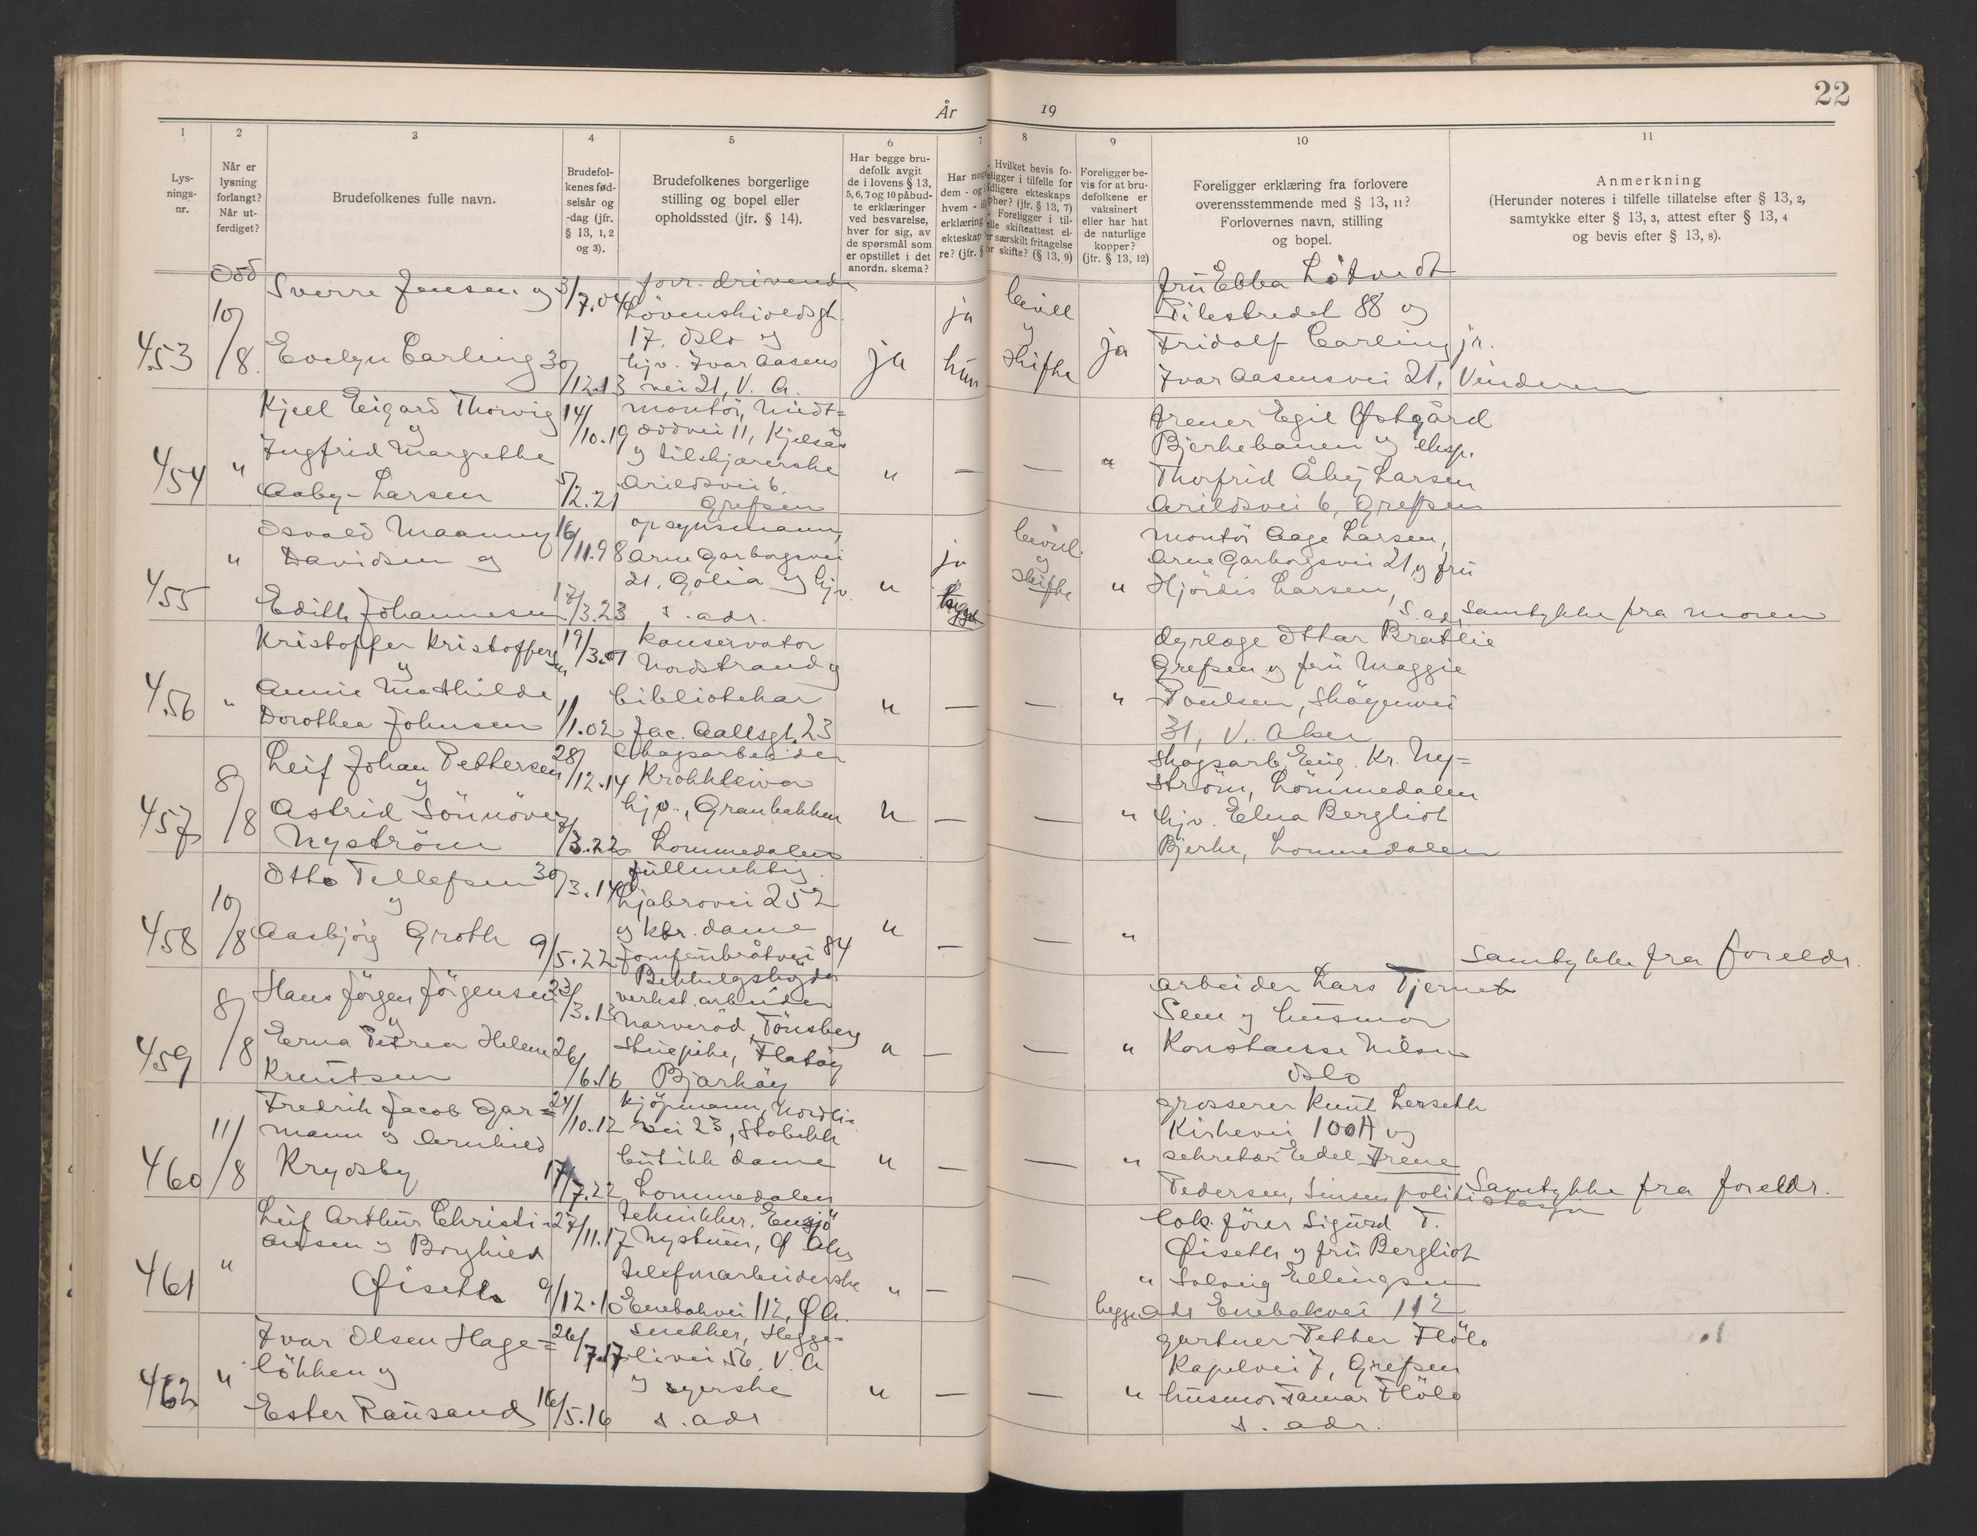 År 19
22
1 2 3 4 5 6 7 8 9 10 11
Lys-
nings-
nr.
Når er
lysning
forlangt?
Når ut-
ferdiget?
Brudefolkenes fulle navn.
Brudefol-
kenes fød-
selsår og
-dag (jfr.
§ 13, 1, 2
og 3).
Brudefolkenes borgerlige
stilling og bopel eller
opholdssted (jfr. § 14).
Har begge bru-
defolk avgit
de i lovens § 13,
5, 6, 7 og 10 påbud-
te erklæringer
ved besvarelse,
hver for sig, av
de spørsmål som
er opstillet i det
anordn. skema?
Har nog
dem - og
hvem -
erklæring
ekteskap
re? (jfr. §
Hvilket bevis fo-
religger i tilfelle for
tidligere ekteskaps
opher? (jfr. § 13, 7)
Foreligger i til-
felle skifteattest el-
er særskilt fritagelse
or skifte? (§ 13, 9)
Foreligger be-
vis for at bru-
defolkene er
vaksinert
eller har hat
de naturlige
kopper?
(jfr. § 13, 12)
Foreligger erklæring fra forlovere
overensstemmende med § 13, 11?
Forlovernes navn, stilling
og bopel.
Anmerkning
(Herunder noteres i tilfelle tillatelse efter § 13, 2,
samtykke efter § 13, 3, attest efter § 13, 4
og bevis efter § 13, 8).
453
10/8
Odd
Sverre Jensen og
Evelyn Carling
3/7.04
30/12.13
forr. drivende
Løvenskioldsgt.
17, Oslo og
hjv. Ivar Aasens
vei 21, V. A.
ja
ja
hun
bevill
og
skifte
ja
fru Ebba Lötvedt
Pilestredet 88 og
Fridolf Carling jr.
Ivar Aasensvei 21, Vinderen
454
"
Kjell Eigard Thorvig
og
Ingfrid Margrethe
Aaby-Larsen
14/10.19
5/2.21
montör, Midt-
oddvei 11, Kjelsås
og tilskjærerske
Arildsvei 6,
Grefsen
"
—
—
"
trener Egil Østgård
Bjerkebanen og eksp.
Thorfrid Åby Larsen
Arildsvei 6, Grefsen
455
"
Osvald Maanny
Davidsen og
Edith Johannesen
16/11.98
17/3.23
opsynsmann,
Arne Garborgsvei
21, Golia og hjv.
s. adr.
"
ja
begge
bevill
og
skifte
"
Montör Aage Larsen,
Arne Garborgsvei 21 og fru
Hjördis Larsen,
s. ad. Samtykke fra moren
456
"
Kristoffer Kristoffersen
og
Annie Mathilde
Dorothea Johnsen
19/3.01
1/1.02
Konservator
Nordstrand og
bibliotekar
Jac. Aallsgt. 23
"
—
—
"
dyrlæge Ottar Bratlie
Grefsen og fru Maggie
Poulsen, Skögenvei
31, V. Aker
457
8/8
Leif Johan Pettersen
og
Astrid Sönnöve
Nyström
28/12.14
8/3.22
skogsarbeider
Krokkleiva
hjv., Granbakken
Lommedalen
"
—
—
"
Skogsarb. Eug. Kr. Ny-
ström, Lömmedalen
hjv. Elna Bergliot
Bjerke, Lommedalen
458
10/8
Otto Tellefsen
og
Aasbjörg Groth
30/3.14
9/5.22
fullmektig
Ljabrovei 252
og ktr. dame
Jomfrubråtvei 84
Bekkelagshøgda
"
—
—
"
Samtykke fra foreldr.
459
8/8
Hans Jörgen Jörgensen
og
Erna Petrea Helene
Knutsen
23/3.13
26/6.16
verkst. arbeider
Narveröd, Tönsberg
Stuepike, Flatöy
Bjarköy
"
—
—
"
arbeider Lars Tjernet
Sem og husmor
Konstanse Nilsen
Oslo
460
11/8
Fredrik Jacob Gar-
mann og Arnhild
Krydsby
24/10.12
17/7.22
kjöpmann, Nordli-
vei 23, Stabekk
butikkdame
Lommedalen
"
—
—
"
grosserer Knut Lesseth
Kirkevei 100A og
sekretær Edel Irene
Pedersen, Linsen politi-
stasjon
Samtykke fra foreldr.
461
"
Leif Arthur Christi-
ansen og Borghild
Øiseth
27/11.17
9/12.10
tekniker, Ensjö
Nystuen, Ø Aker
telefonarbeiderske
Enebakvei 112, Ø A.
"
—
—
"
lok. förer Sigurd T.
Øiseth og fru Bergliot
Solveig Ellingsen
begge adr Enebakvei 112
462
"
Ivar Olsen Hage-
lökken og
Ester Rausand
26/7.17
16/5.16
snekker, Hegge-
livei 56, V. A
og syerske
s. adr.
"
—
—
"
gartner Petter Flölo
Kapelvei 7, Grefsen
husmor Tamar Flölo
s. adr.